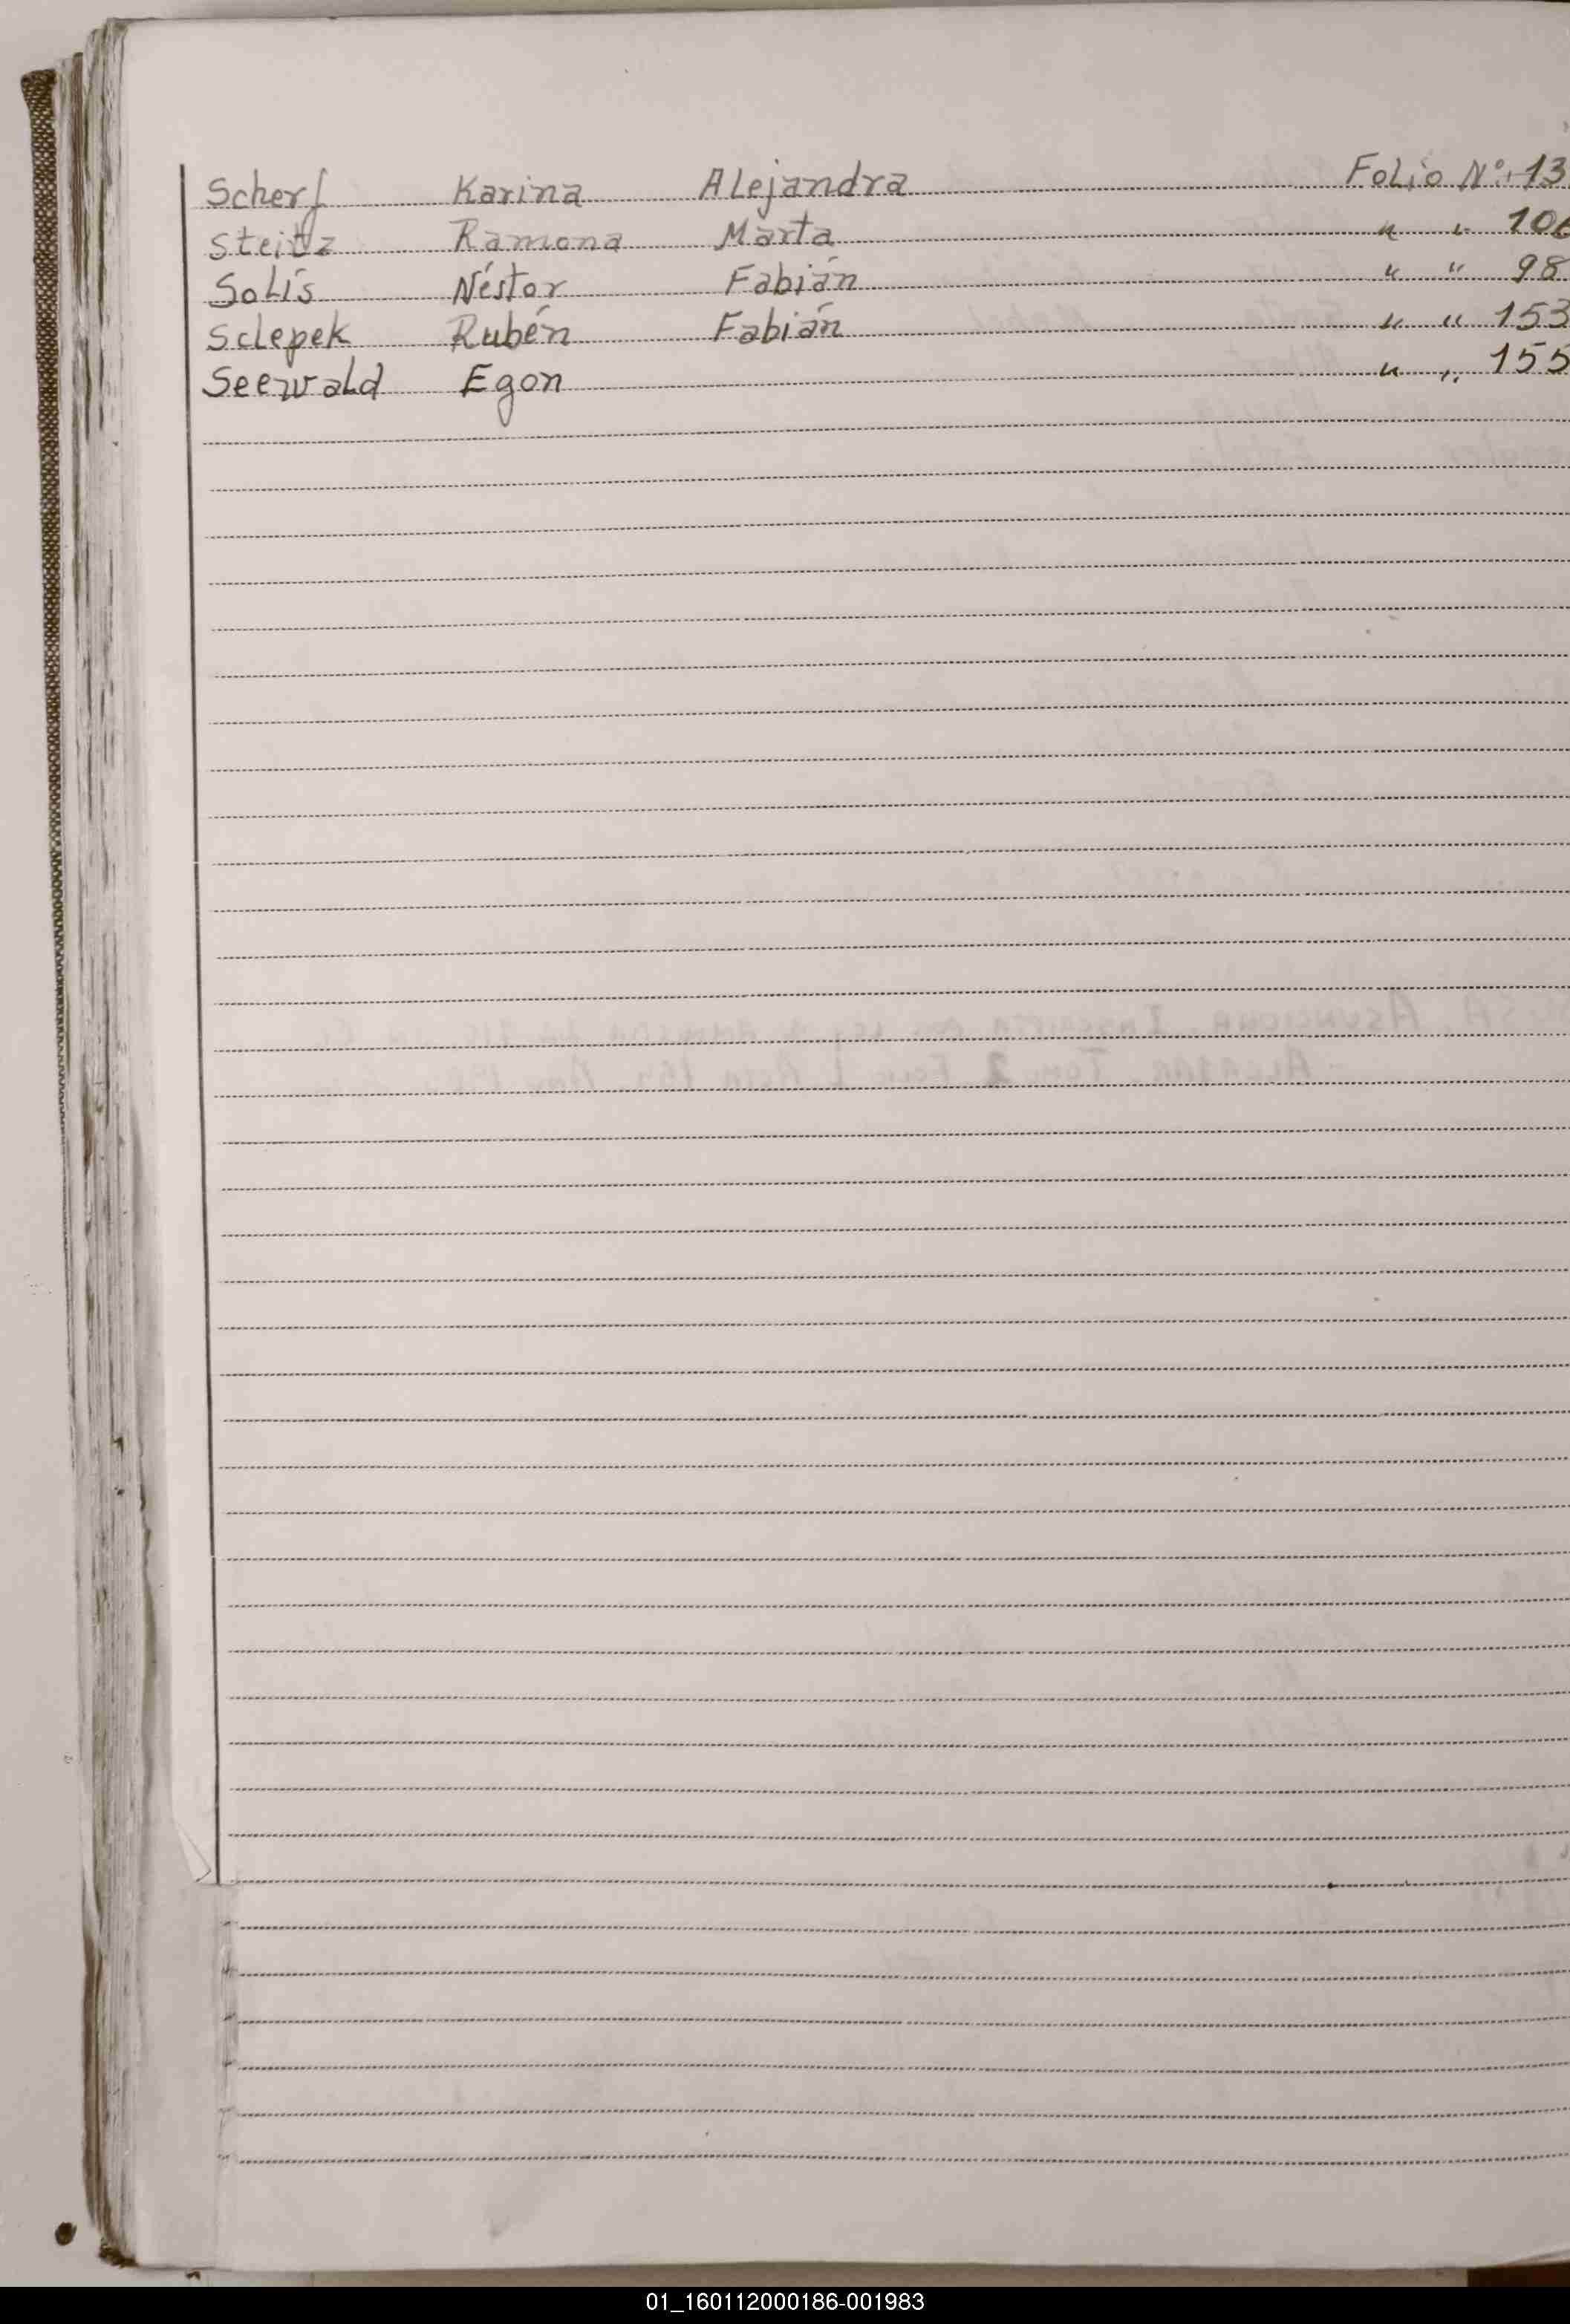 Scherf Karina Alejandra Folio Nº: 13
Steitz Ramona Marta " " 106
Solís Néstor Fabián " " 98
Sclepek Rubén Fabián " " 153
Seewald Egon " " 155
01_160112000186-001983